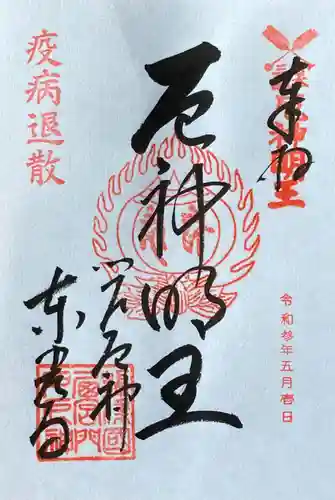 奉拝
厄神明王
疫病退散
令和参年五月壱日
門戸厄神
東光寺